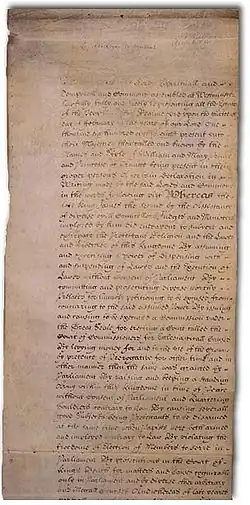 Lords Spirituall and
Temporall and Commons assembled at Westminster
lawfully fully and freely representing all the Estates
of the People of this Realme did upon the
day of February in the yeare of our Lord One
thousand six hundred eighty eight present unto
their Majesties then called and known by the
Names and Stile of William and Mary Prince
and Princesse of Orange being present in their
proper Persons A certain Declaration in
Writeing made by the said Lords and Commons
in the words following viz Whereas the
late King James the Second by the Assistance
of diverse evill Councellors Judges and Ministers
imployed by him did endeavour to subvert and
extirpate the Protestant Religion and the Lawes
and Liberties of this Kingdome By assuming
and exercising a power of dispensing with
and suspending of Lawes and the Execution of
Lawes without consent of Parliament By
committing and prosecuting diverse worthy
Prelates for humbly petitioning to be excused from
concurring to the said assumed power By issuing
and causing to be executed a Commission under
the Great Seale for erecting a Court called the
Court of Commissioners for Ecclesiasticall Causes
By levying money for and to the use of the Crown
by pretence of Prerogative for other time and in
other manner then the same was granted by
Parliament By raising and keeping a standing
Army within this Kingdome in time of Peace
without consent of Parliament and Quartering
Souldiers contrary to Law By causing severall
good Subjects being Protestants to be disarmed
at the same time when Papists were both armed
and imployed contrary to Law By violating the
freedome of Election of Members to serve in
Parliament By prosecutions in the Court of
Kings Bench for matters and causes cognizable
only in Parliament and by diverse other arbitrary
and illegal courses And whereas of late yeares